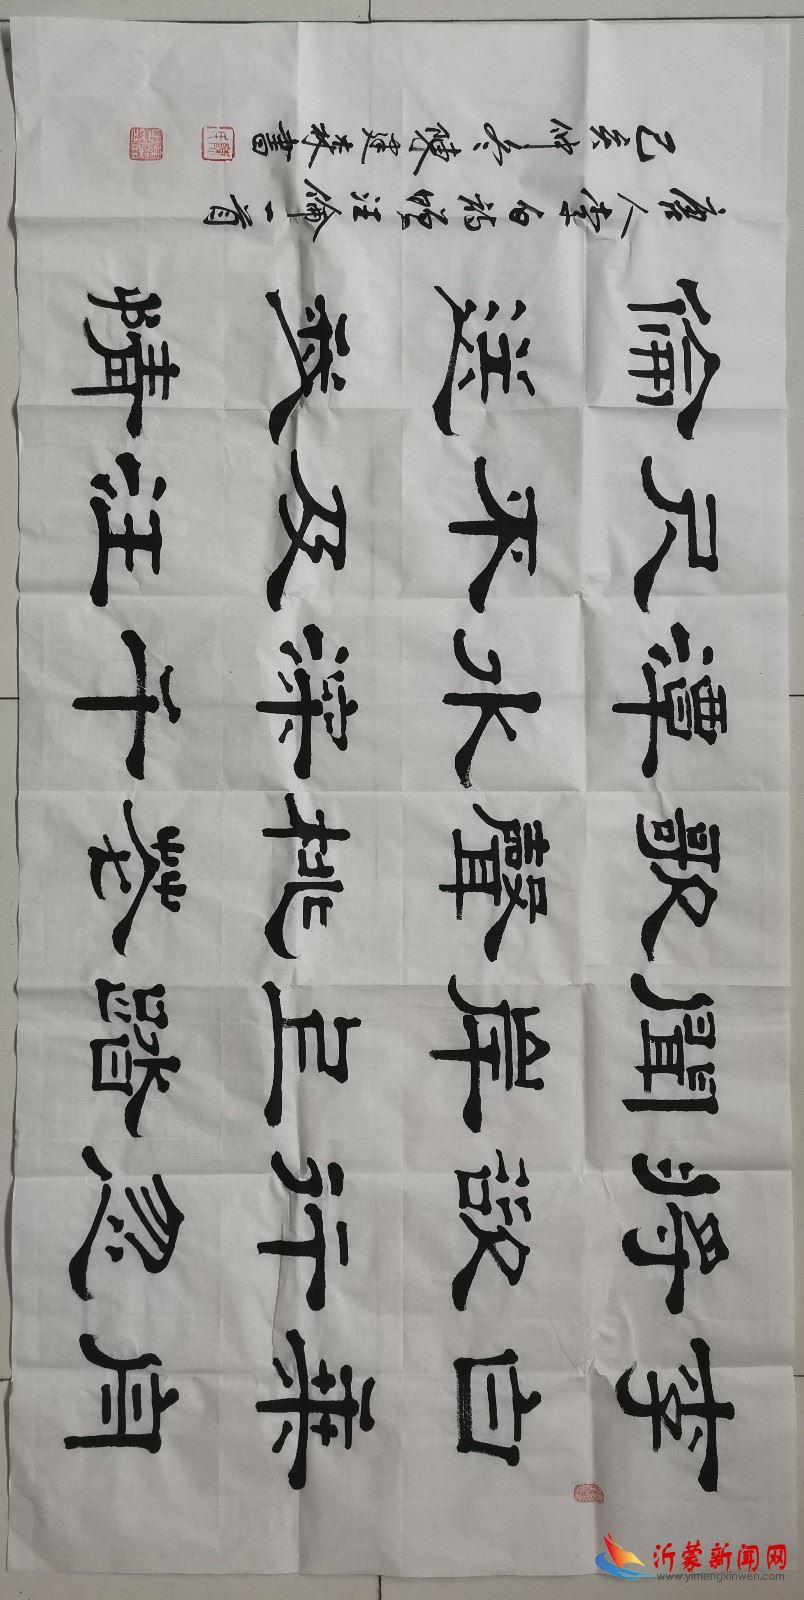 李白乘舟
將欲行忽
聞岸上踏
歌聲桃花
潭水深千
尺不及汪
倫送我情
唐人李白詩贈汪倫一首
己亥仲冬陳建書
沂蒙新闻网
www.yimengxinwen.com